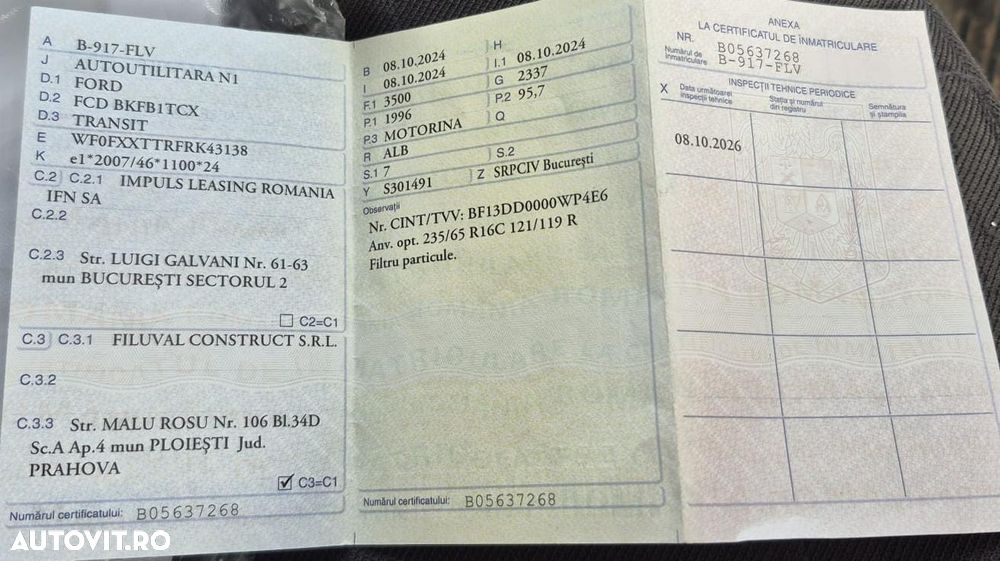 A B-917-FLV
J AUTOUTILITARA N1
D.1 FORD
D.2 FCD BKFB1TCX
D.3 TRANSIT
E WF0FXXTTRFRK43138
K e1*2007/46*1100*24
C.2 C.2.1 IMPULS LEASING ROMANIA
IFN SA
C.2.2
C.2.3 Str. LUIGI GALVANI Nr. 61-63
mun BUCUREŞTI SECTORUL 2
C2=C1
C.3 C.3.1 FILUVAL CONSTRUCT S.R.L.
C.3.2
C.3.3 Str. MALU ROSU Nr. 106 Bl.34D
Sc.A Ap.4 mun PLOIEŞTI Jud.
PRAHOVA
C3=C1
Numărul certificatului: B05637268
B 08.10.2024 H
I 08.10.2024 I.1 08.10.2024
F.1 3500 G 2337
P.1 1996 P.2 95,7
P.3 MOTORINA Q
R ALB
S.1 7 S.2
Y S301491 Z SRPCIV Bucureşti
Observaţii
Nr. CINT/TVV: BF13DD0000WP4E6
Anv. opt. 235/65 R16C 121/119 R
Filtru particule.
Numărul certificatului: B05637268
ANEXA
LA CERTIFICATUL DE ÎNMATRICULARE
NR. B05637268
Numărul de înmatriculare B-917-FLV
INSPECŢII TEHNICE PERIODICE
X Data următoarei inspecţii tehnice
Staţia şi numărul din registru
Semnătura şi ştampila
08.10.2026
AUTOVIT.RO